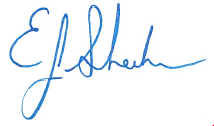 EJ Sheehan